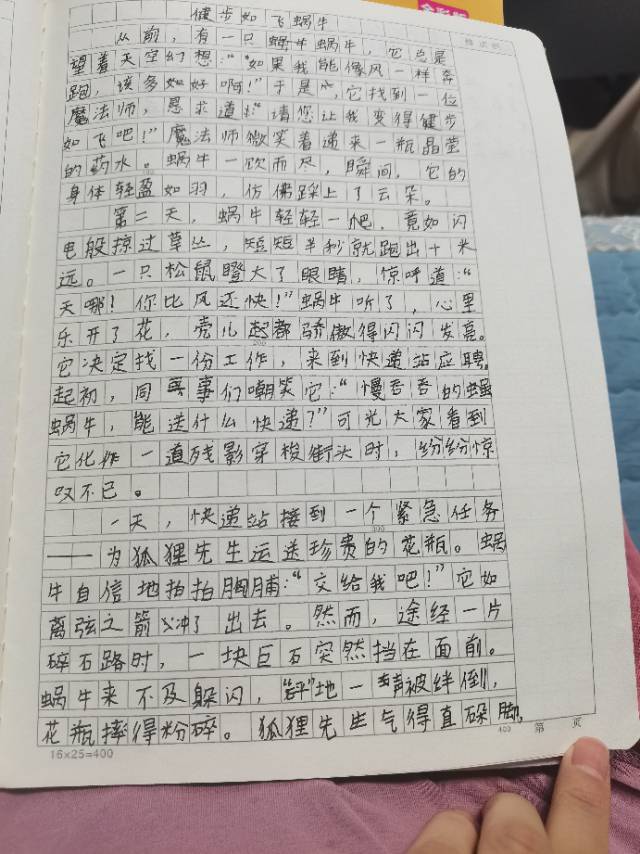 全彩版
健步如飞蜗牛
从前，有一只蜗牛蜗牛，它总是
望着天空幻想：“如果我能像风一样奔
跑，该多如好啊！”于是，它找到一位
魔法师，恳求道：“请您让我变得健步
如飞吧！”魔法师微笑着递来一瓶晶莹
的药水。蜗牛一饮而尽，瞬间，它的
身体轻盈如羽，仿佛踩上了云朵。
第二天，蜗牛轻轻一爬，竟如闪
电般掠过草丛，短短半秒就跑出十米
远。一只松鼠瞪大了眼睛，惊呼道：“
天哪！你比风还快！”蜗牛听了，心里
乐开了花，壳儿起都骄傲得闪闪发亮。
它决定找一份工作，来到快递站应聘。
起初，同事们嘲笑它：“慢吞吞的
蜗牛，能送什么快递？”可当大家看到
它化作一道残影穿梭街头时，纷纷惊
叹不已。
一天，快递站接到一个紧急任务
——为狐狸先生运送珍贵的花瓶。蜗
牛自信地拍拍胸脯：“交给我吧！”它如
离弦之箭冲了出去。然而，途经一片
碎石路时，一块巨石突然挡在面前。
蜗牛来不及躲闪，“砰”地一声被绊倒，
花瓶摔得粉碎。狐狸先生气得直跺脚，
16×25=400
400
第 页